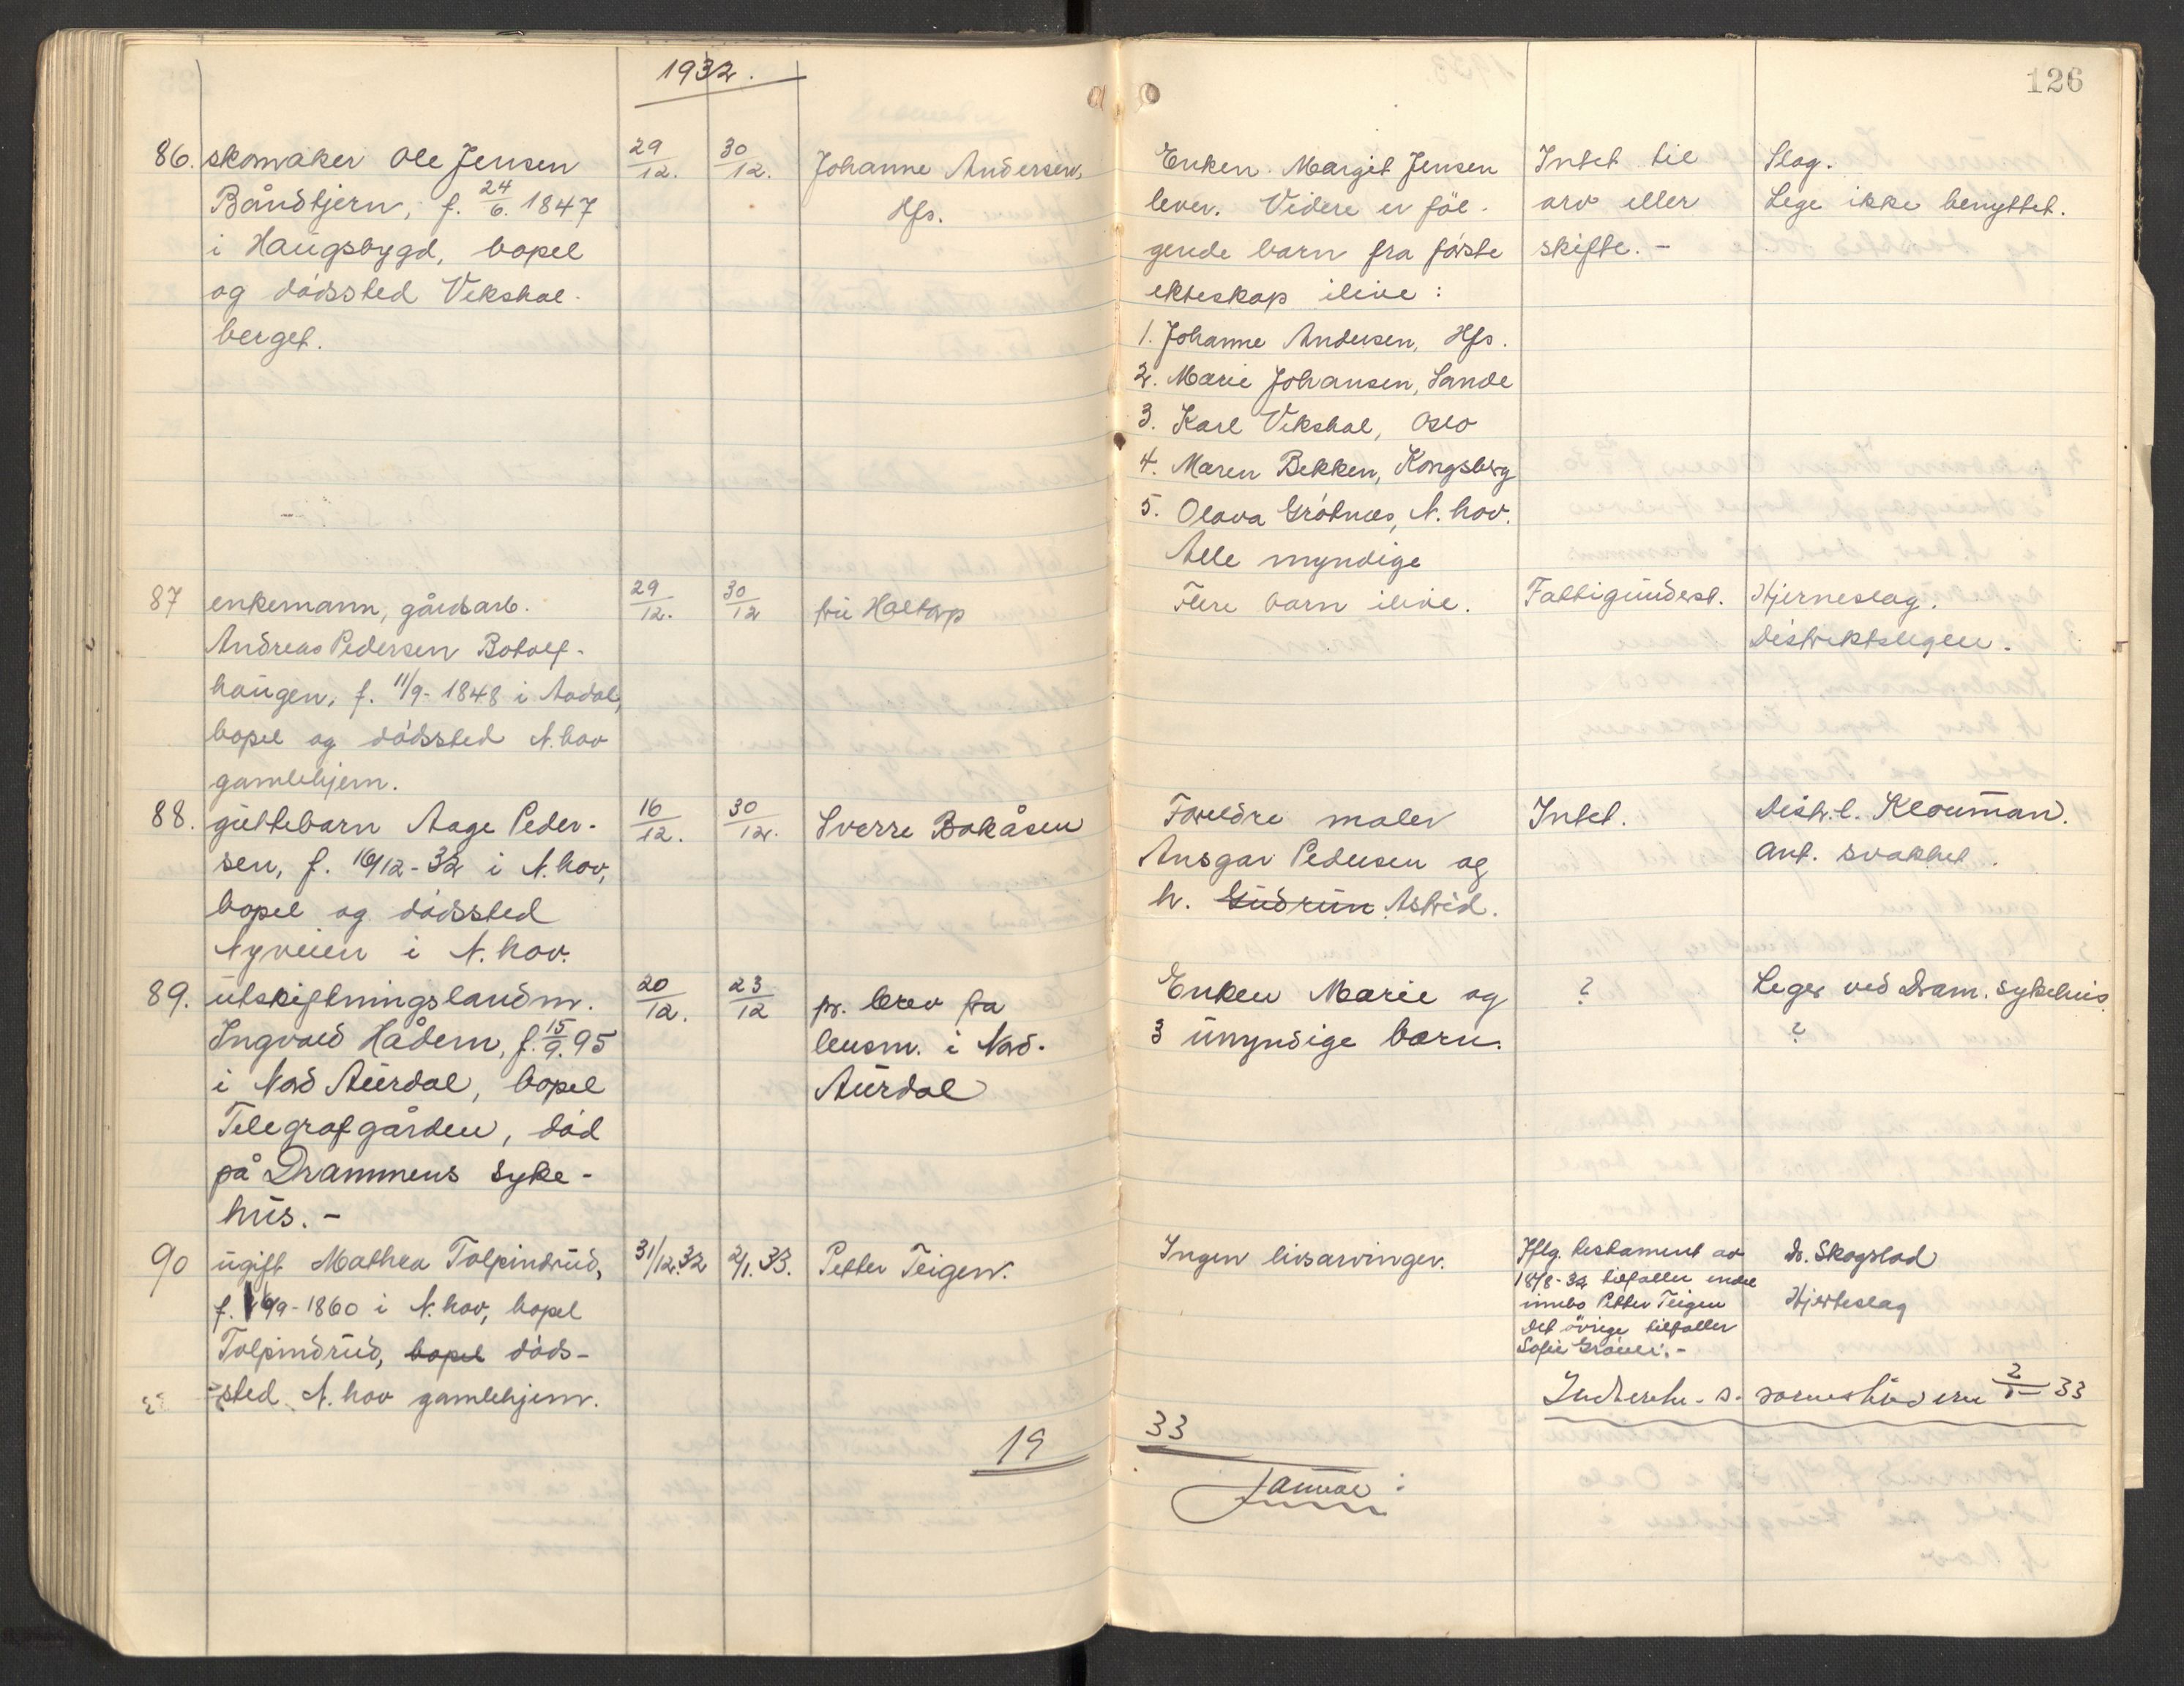 1932.
126
86. skomaker Ole Jensen
Båndtjern, f. 24/6. 1847
i Haugsbygd, bopel
og dødssted Vekshal-
berget.
29/12.
30/12.
Johanne Andersen,
Hfs.
Enken Margit Jensen
lever. Videre er føl-
gende barn fra første
ekteskap ilive:
1. Johanne Andersen, Hfs.
2. Marie Johansen, Sande
3. Karl Vekshal, Oslo
4. Maren Bekken, Kongsberg
5. Olava Grøtnæs, N.hov.
Alle myndige
Intet til
arv eller
skifte. -
Slag.
Lege ikke benyttet.
87 enkemann, gårdsarb.
Andreas Pedersen Botolf-
haugen, f. 11/9-1848 i Aadal,
bopel og dødssted N.hov
gamlehjem.
29/12.
30/12
fru Haltorp
Flere barn ilive.
Fattigunderst.
Hjerneslag.
Distriktslegen.
88. guttebarn Aage Peder-
sen, f. 16/12-32 i N.hov,
bopel og dødssted
Nyveien i N.hov.
16/12.
30/12.
Sverre Bakåsen
Foreldre maler
Ansgar Pedersen og
h. Gudrun Astrid.
Intet.
Distr.l. Klouman.
Ant. svakhet.
89. utskiftningslandm.
Ingvald Hådem, f. 15/9.95
i Nord Aurdal, bopel
Telegrafgården, død
på Drammens syke-
hus. -
20/12.
23/12
pr. brev fra
lensm. i Nord-
Aurdal
Enken Marie og
3 umyndige barn.
?
Leger ved Dram. sykehus
?
90 ugift Mathea Tolpinrud,
f. 16/9-1860 i N.hov, bopel
Tolpinrud, bopel døds-
sted N.hov gamlehjem.
31/12.32
2/1.33.
Petter Teigen.
Ingen livsarvinger.
Iflg. testament av
18/8-32 tilfaller endel
innbo Petter Teigen
Det øvrige tilfaller
Sofie Grønli. -
Dr. Skogstad
Hjerteslag
2/1-33
19
33
Januar: